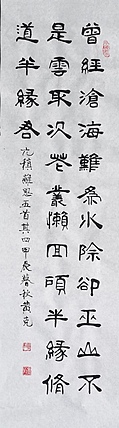 曾經滄海難為水除卻巫山不
是雲取次花叢懶回顧半緣脩
道半緣君
元稹離思五首其四甲辰暮秋黃克